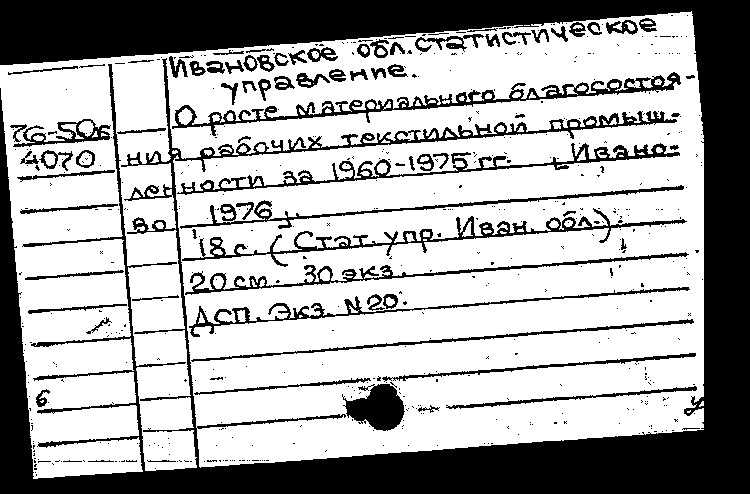 Ивановское обл. статистическое
управление.
О росте материального благосостоя-
76-50к
4070
ния рабочих текстильной промыш-
ленности за 1960-1975 гг. [Ивано-
во, 1976].
18 с. (Стат. упр. Иван. обл.).
20 см. 30 экз.
ДСП. Экз. N 20.
6
у